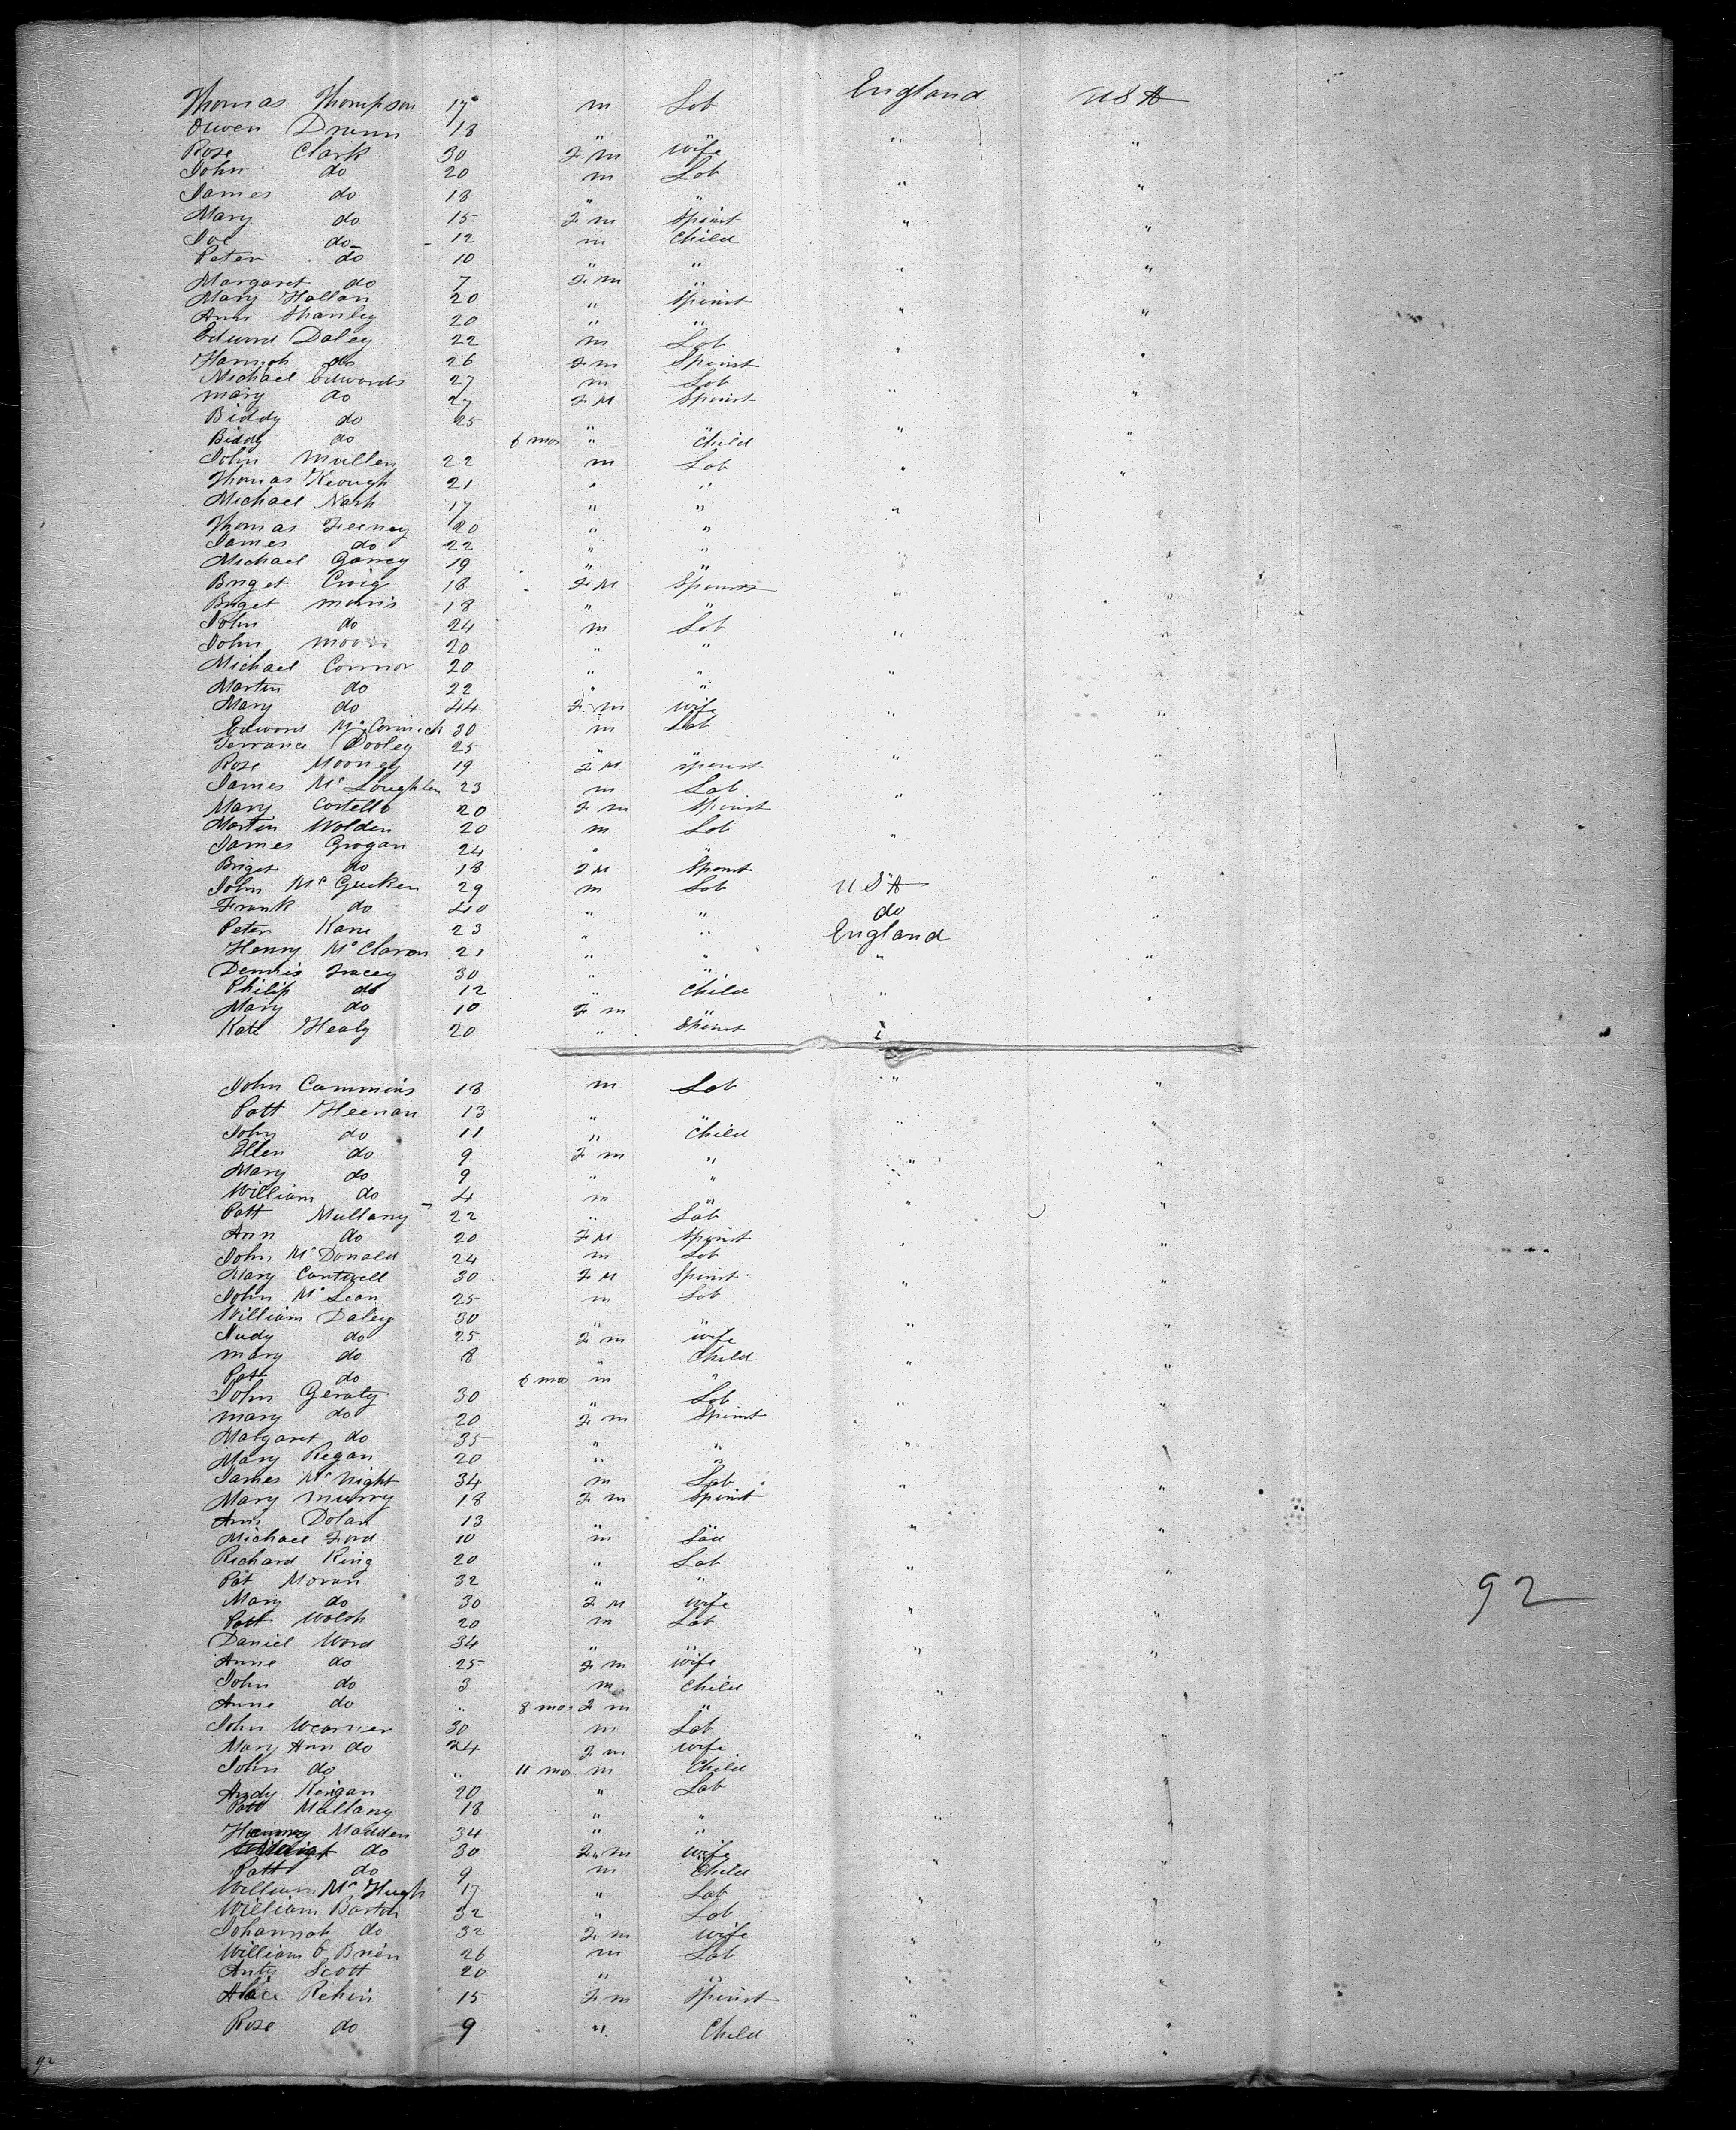 Thomas Thompson 17 m Lab England USA
Owen Drum 18 " " " "
Rose Clark 30 Fm wife
John do 20 m Lab " "
James do 18 " "
Mary do 15 Fm Spinst " "
Joe do 12 m Child
Peter do 10 " " " "
Margaret do 7 Fm "
Mary Hallan 20 " Spinst " "
Ann Shanley 20 " "
Edward Daley 22 m Lab " "
Hannah do 26 Fm Spinst
Michael Edwards 27 m Lab
Mary do 27 FM Spinst " "
Biddy do 25 "
Biddy do 6 mos " Child " "
John Mullen 22 m Lab
Thomas Keough 21 " " " "
Michael Nash 17 " "
Thomas Feeney 20 " " " "
James do 22 " "
Michael Garvey 19 " " " "
Briget Craig 18 FM Spinst
Briget Morris 18 " " " "
John do 24 m Lab
John Moore 20 " " " "
Michael Connor 20 " "
Martin do 22 " " " "
Mary do 44 Fm wife
Edward McCormick 30 m Lab " "
Terrance Dooley 25 "
Rose Mooney 19 FM Spinst " "
James McLoughlen 23 m Lab
Mary Costello 20 Fm Spinst " "
Martin Wolden 20 m Lab
James Grogan 24 " " " "
Briget do 18 FM Spinst
John McGucken 29 m Lab USA "
Frank do 40 " " do
Peter Kane 23 " " England "
Henry McClaren 21 " " " "
Dennis Tracey 30 " "
Philip do 12 " Child " "
Mary do 10 Fm "
Kate Healy 20 " Spinst
John Cammins 18 m Lab " "
Patt Heenan 13 " "
John do 11 " Child " "
Ellen do 9 Fm "
Mary do 9 " " " "
William do 4 m "
Patt Mullany 22 " Lab " "
Ann do 20 FM Spinst
John McDonald 24 m Lab " "
Mary Cantwell 30 FM Spinst
John McLean 25 m Lab " "
William Daley 30 " "
Judy do 25 Fm wife " "
Mary do 8 " Child
Patt do 6 mos m " " "
John Geraty 30 " Lab
Mary do 20 Fm Spinst " "
Margaret do 35 " "
Mary Regan 20 " " " "
James McNight 34 m Lab
Mary Murry 18 Fm Spinst " "
Ann Dolan 13 " "
Michael Ford 10 m Lad " "
Richard King 20 " Lab
Pat Moran 32 " " " "
Mary do 30 FM wife
Patt Walsh 20 m Lab " "
Daniel Ward 34 " "
Anne do 25 Fm wife " "
John do 3 m Child
Anne do " 8 mos Fm " " "
John Wearner 30 m Lab
Mary Ann do 24 Fm wife " "
John do " 11 mos m Child
Andy Keigan 20 " Lab "
Patt Mullany 18 " " "
Madden 34 " " "
do 30 Fm wife
Patt do 9 m Child " "
William McHugh 17 " Lab
William Barton 32 " Lab " "
Johannah do 32 Fm wife
William O Brien 26 m Lab " "
Anty Scott 20 " "
Alice Rehin 15 Fm Spinst " "
Rose do 9 " Child " "
92
92